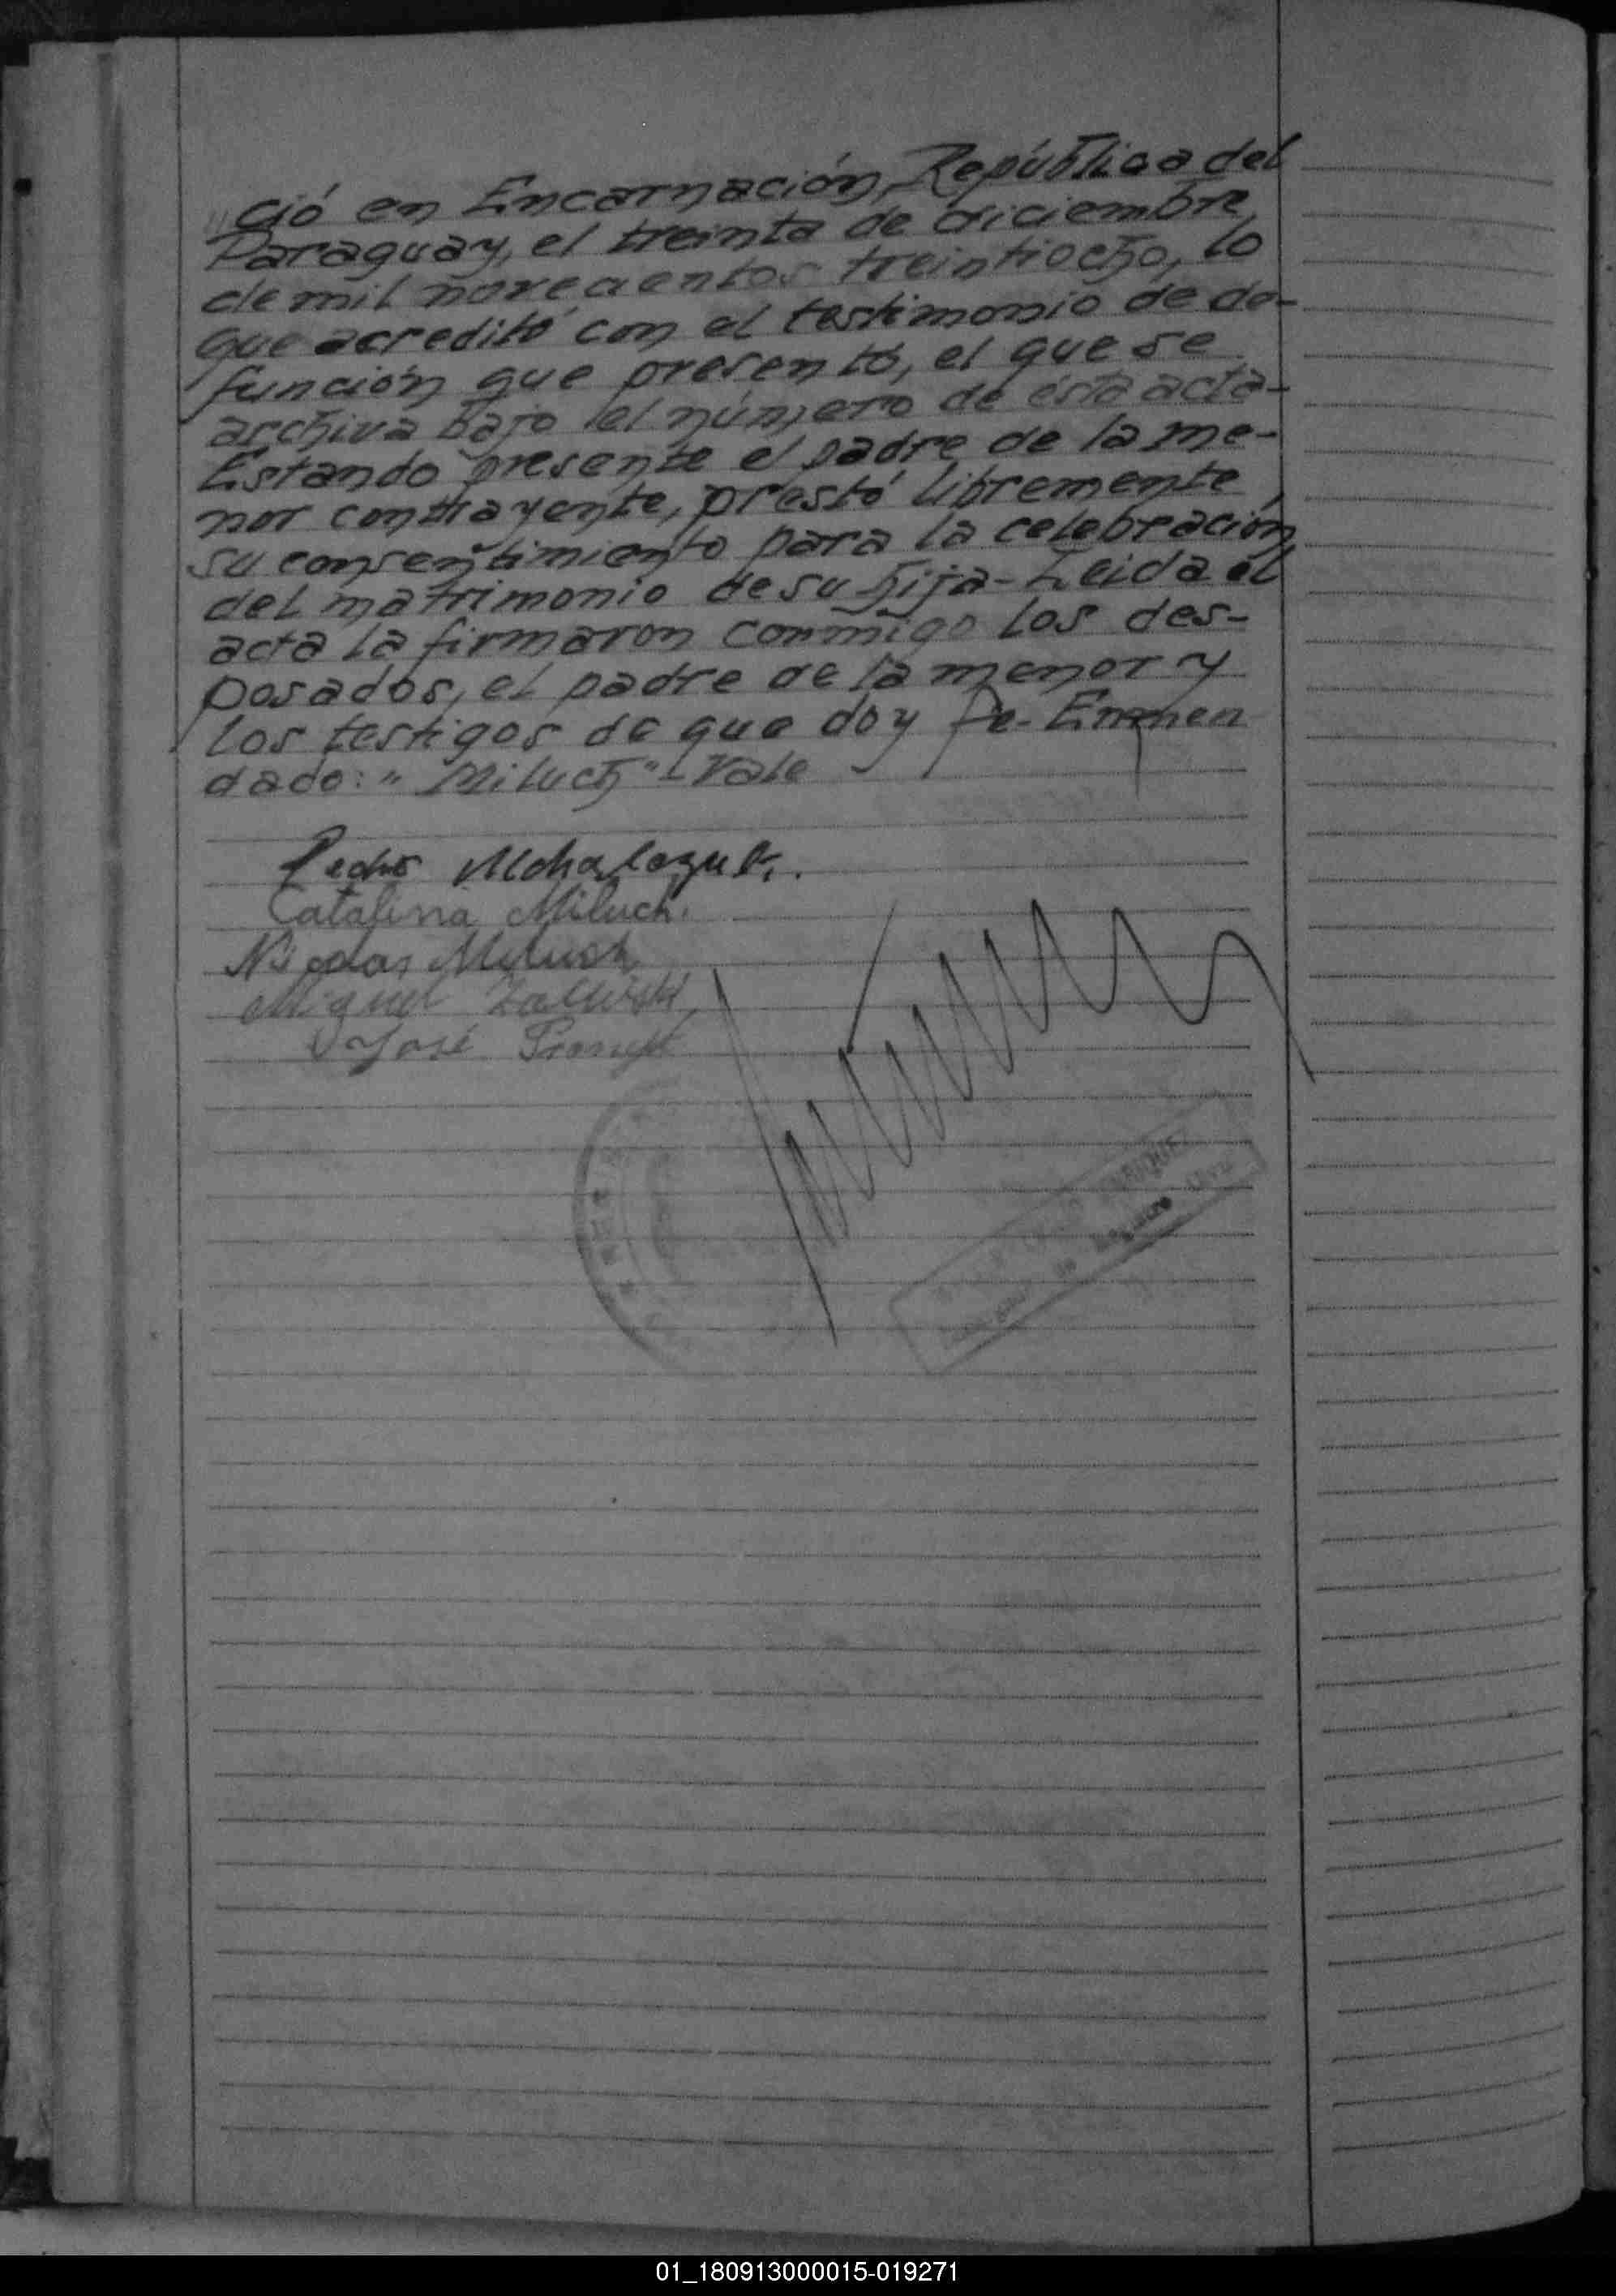 ció en Encarnación, República del
Paraguay, el treinta de diciembre,
de mil novecientos treintiocho, lo
que acreditó con el testimonio de de-
función que presentó, el que se
archiva bajo el número de ésta acta-
Estando presente el padre de la me-
nor contrayente, prestó libremente
su consentimiento para la celebración
del matrimonio de su hija- Leida el
acta la firmaron conmigo los des-
posados, el padre de la menor y
los testigos de que doy fe- Enmen
dado: "Miluch"- Vale
Pedro
Catalina Miluch.
Nicolas Miluch
Miguel Zaluski
José
de Registro Civil
01_180913000015-019271